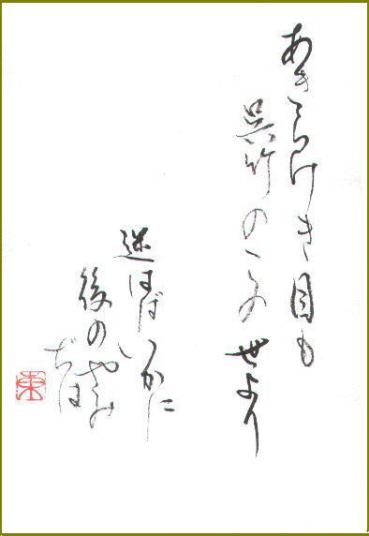 あきらけき目も
呉竹のこの世より
迷はばいかに
後のやみ
ぢは
東